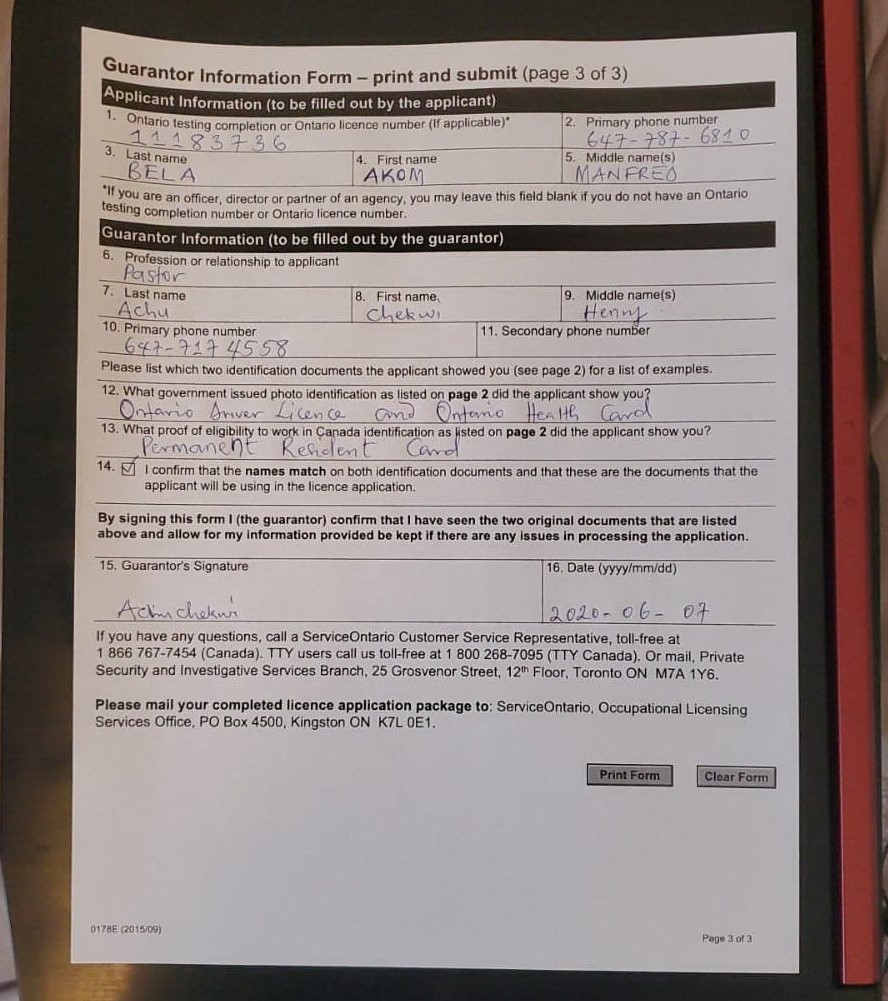 Guarantor Information Form – print and submit (page 3 of 3)
Applicant Information (to be filled out by the applicant)
1. Ontario testing completion or Ontario licence number (If applicable)*
11183736
2. Primary phone number
647-787-6810
3. Last name
BELA
4. First name
AKOM
5. Middle name(s)
MANFRED
*If you are an officer, director or partner of an agency, you may leave this field blank if you do not have an Ontario
testing completion number or Ontario licence number.
Guarantor Information (to be filled out by the guarantor)
6. Profession or relationship to applicant
Pastor
7. Last name
Achu
8. First name
Chekwi
9. Middle name(s)
Henry
10. Primary phone number
647-717 4558
11. Secondary phone number
Please list which two identification documents the applicant showed you (see page 2) for a list of examples.
12. What government issued photo identification as listed on page 2 did the applicant show you?
Ontario Driver Licence and Ontario Health Card
13. What proof of eligibility to work in Canada identification as listed on page 2 did the applicant show you?
Permanent Resident Card
14. ☑ I confirm that the names match on both identification documents and that these are the documents that the
applicant will be using in the licence application.
By signing this form I (the guarantor) confirm that I have seen the two original documents that are listed
above and allow for my information provided be kept if there are any issues in processing the application.
15. Guarantor's Signature
Achu chekwi
16. Date (yyyy/mm/dd)
2020-06-07
If you have any questions, call a ServiceOntario Customer Service Representative, toll-free at
1 866 767-7454 (Canada). TTY users call us toll-free at 1 800 268-7095 (TTY Canada). Or mail, Private
Security and Investigative Services Branch, 25 Grosvenor Street, 12th Floor, Toronto ON M7A 1Y6.
Please mail your completed licence application package to: ServiceOntario, Occupational Licensing
Services Office, PO Box 4500, Kingston ON K7L 0E1.
Print Form
Clear Form
0178E (2015/09)
Page 3 of 3